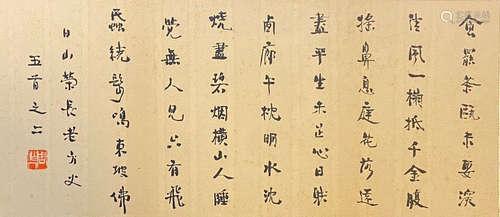 食罷茶甌未要深
清風一榻抵千金腹
搖鼻息庭花落還
盡平生未足心日射
西廊午枕明水沈
燒盡碧烟橫山人睡
覺無人見只有飛
蟁繞鬢鳴東坡佛
日山榮長老方丈
五首之二